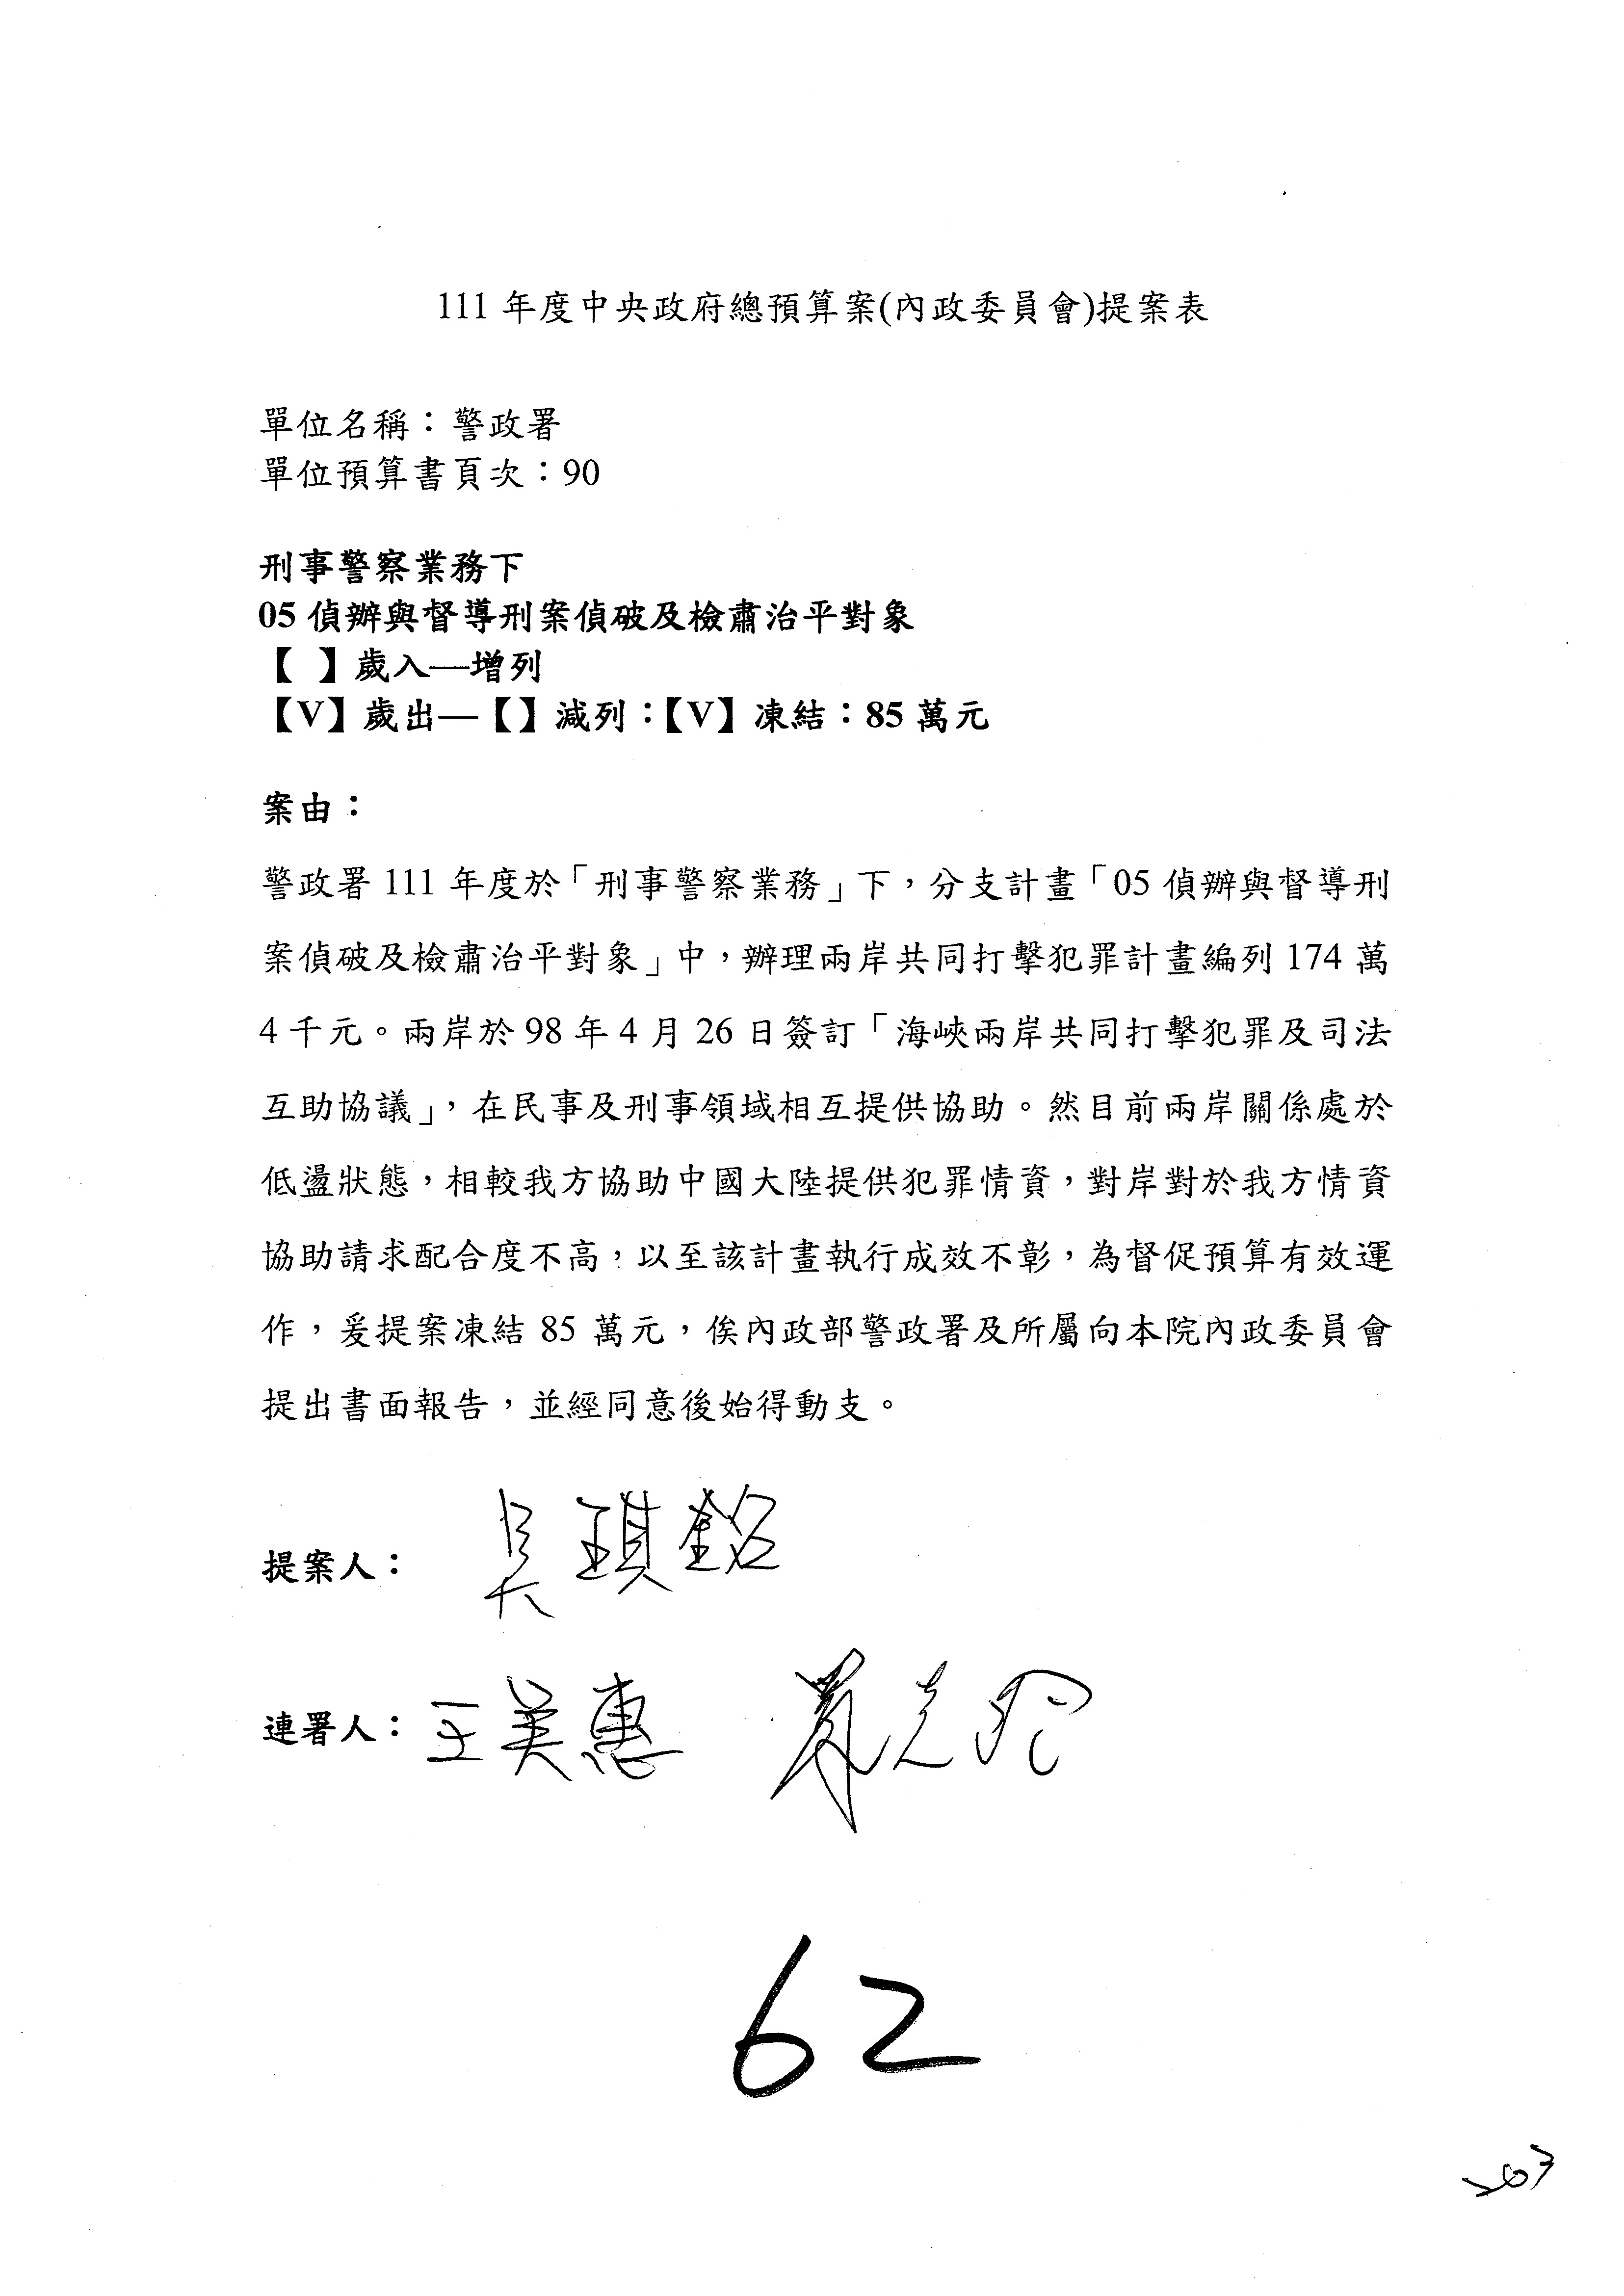 111 年度中央政府總預算案(內政委員會)提案表
單位名稱：警政署
單位預算書頁次：90
刑事警察業務下
05 偵辦與督導刑案偵破及檢肅治平對象
【 】歲入—增列
【V】歲出—【】減列：【V】凍結：85 萬元
案由：
警政署 111 年度於「刑事警察業務」下，分支計畫「05 偵辦與督導刑
案偵破及檢肅治平對象」中，辦理兩岸共同打擊犯罪計畫編列 174 萬
4 千元。兩岸於 98 年 4 月 26 日簽訂「海峽兩岸共同打擊犯罪及司法
互助協議」，在民事及刑事領域相互提供協助。然目前兩岸關係處於
低盪狀態，相較我方協助中國大陸提供犯罪情資，對岸對於我方情資
協助請求配合度不高，以至該計畫執行成效不彰，為督促預算有效運
作，爰提案凍結 85 萬元，俟內政部警政署及所屬向本院內政委員會
提出書面報告，並經同意後始得動支。
提案人：吳琪銘
連署人：王美惠
62
203